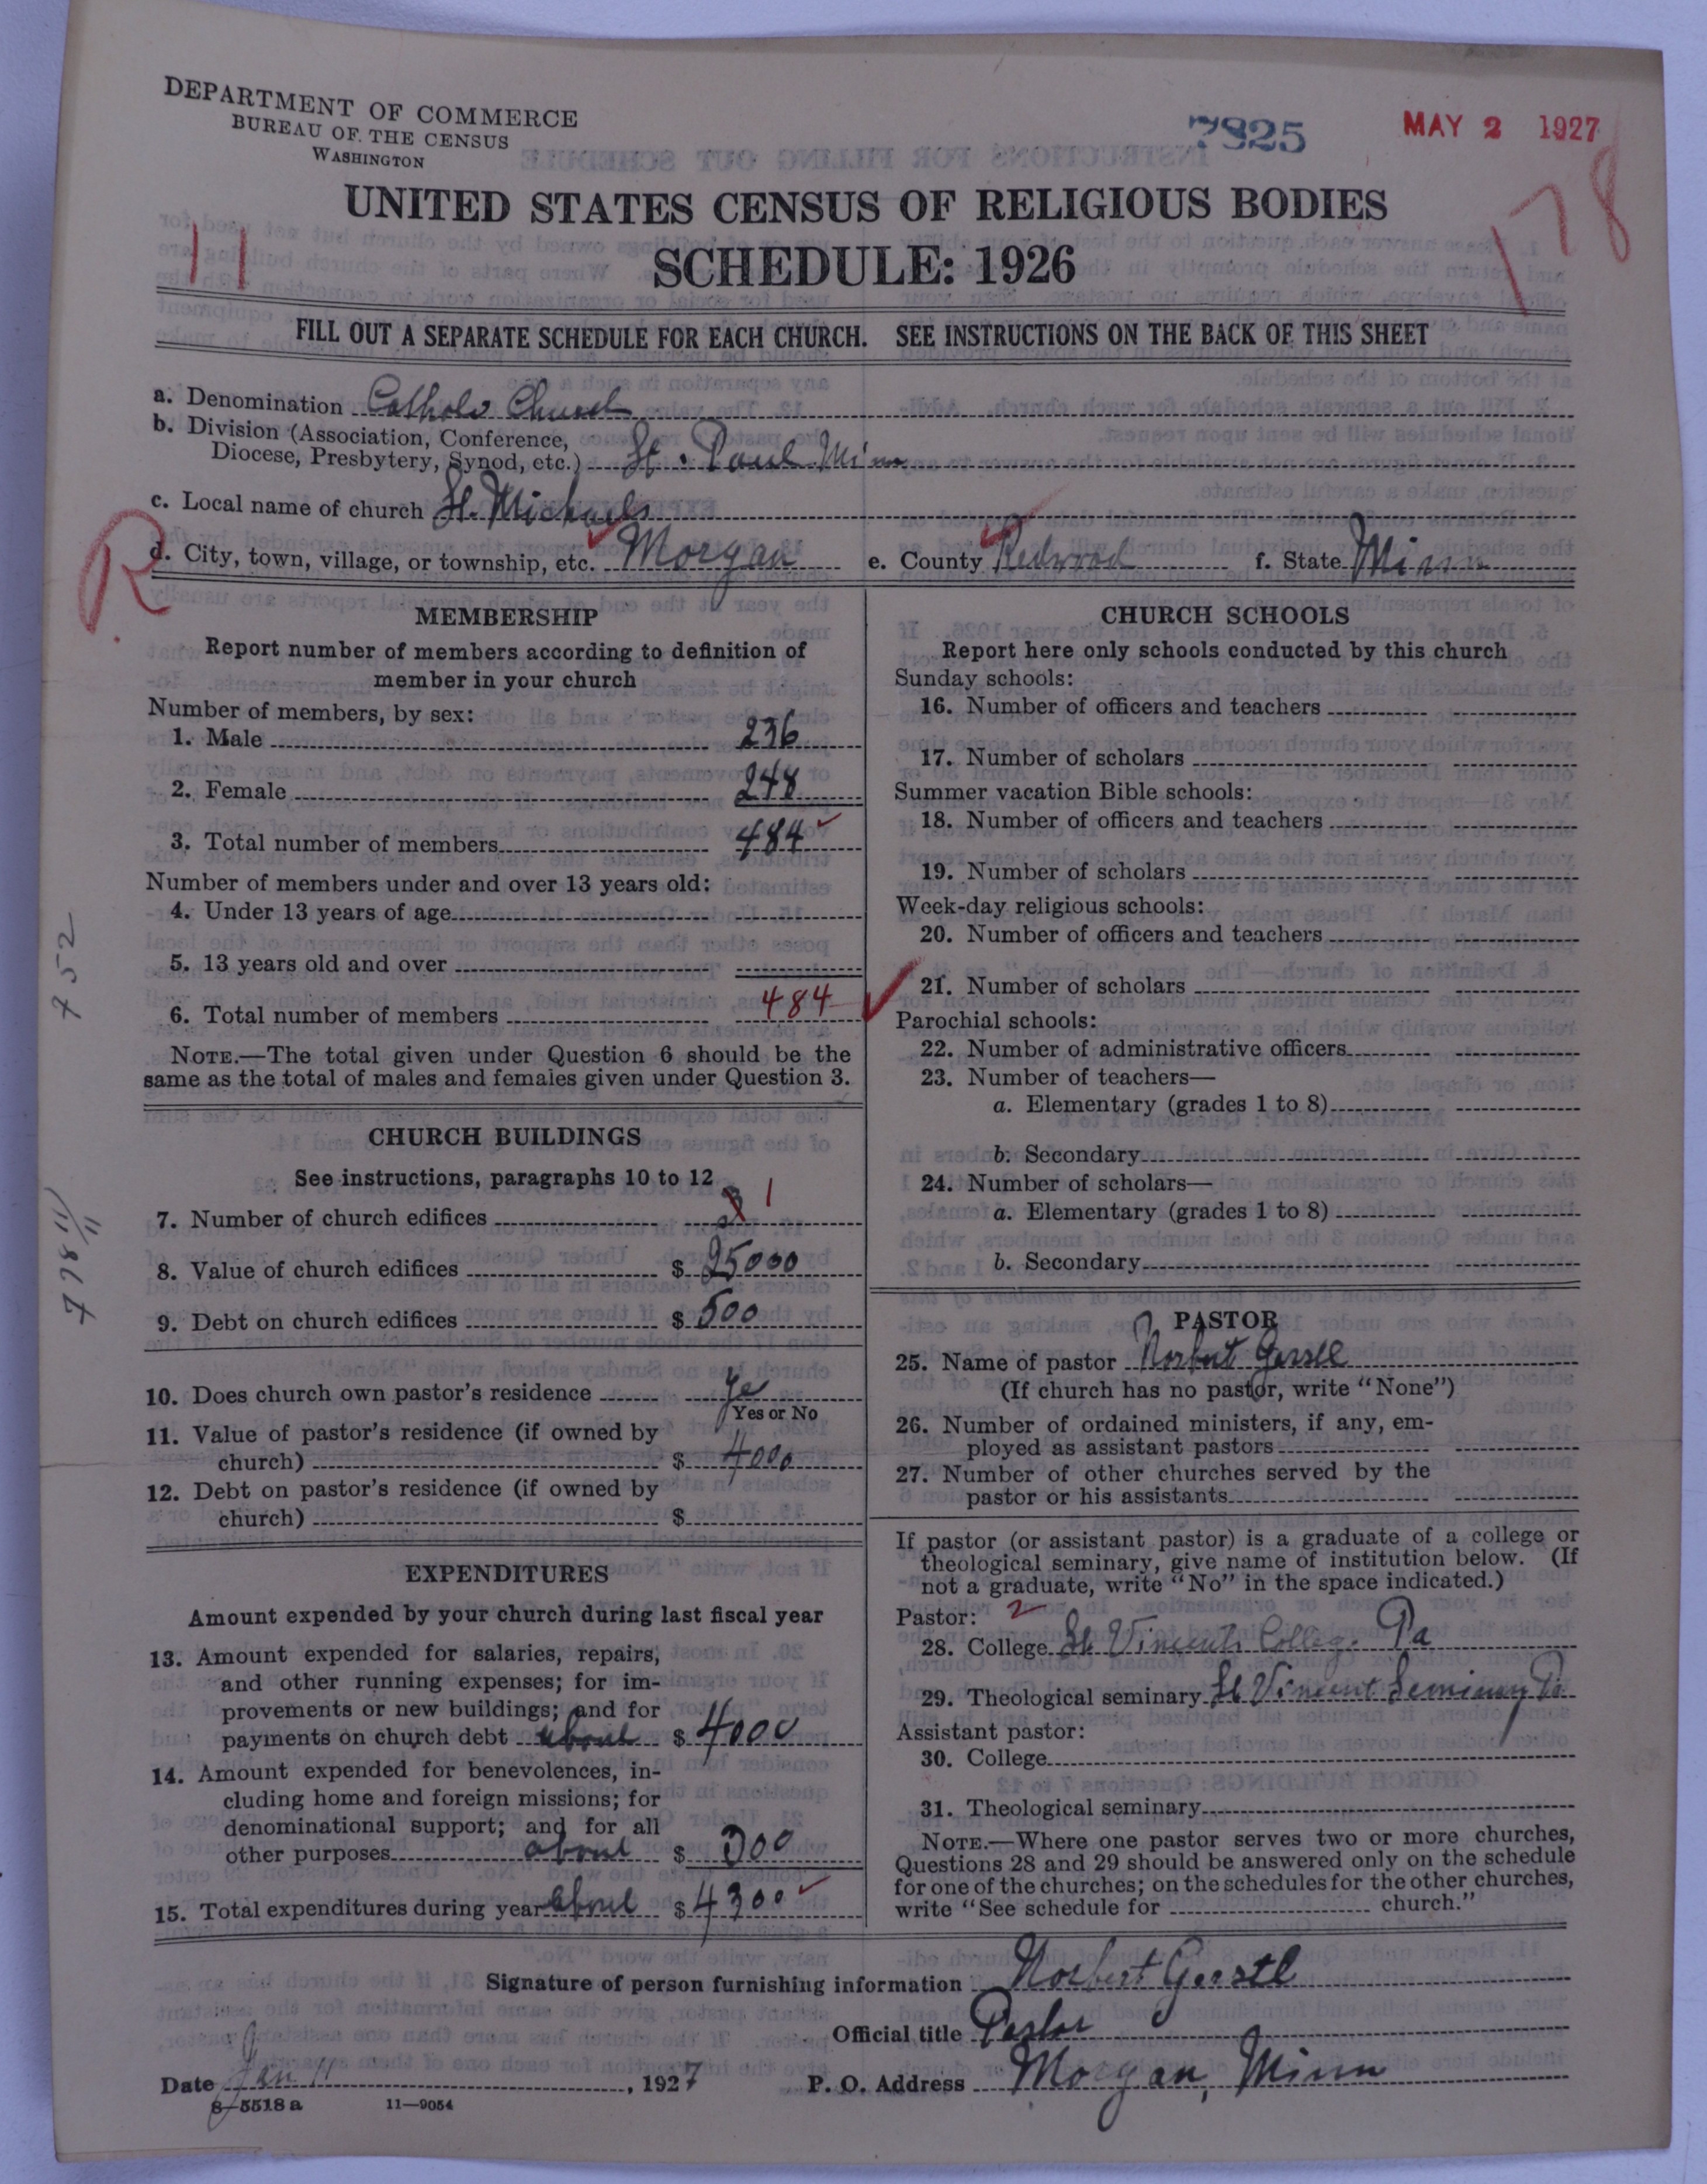 DEPARTMENT OF COMMERCE
BUREAU OF THE CENSUS
WASHINGTON
7825
MAY 2 1927
UNITED STATES CENSUS OF RELIGIOUS BODIES
SCHEDULE: 1926
11
178
FILL OUT A SEPARATE SCHEDULE FOR EACH CHURCH. SEE INSTRUCTIONS ON THE BACK OF THIS SHEET
a. Denomination Catholic Church
b. Division (Association, Conference,
Diocese, Presbytery, Synod, etc.) St. Paul Minn
c. Local name of church St. Michaels
R
d. City, town, village, or township, etc. Morgan e. County Redwood f. State Minn
MEMBERSHIP
Report number of members according to definition of
member in your church
Number of members, by sex:
1. Male 236
2. Female 248
3. Total number of members 484
Number of members under and over 13 years old:
4. Under 13 years of age
5. 13 years old and over
6. Total number of members 484
NOTE.—The total given under Question 6 should be the
same as the total of males and females given under Question 3.
CHURCH BUILDINGS
See instructions, paragraphs 10 to 12
7. Number of church edifices 1
8. Value of church edifices $ 25000
9. Debt on church edifices $ 500
10. Does church own pastor's residence Yes
Yes or No
11. Value of pastor's residence (if owned by
church) $ 4000
12. Debt on pastor's residence (if owned by
church) $
EXPENDITURES
Amount expended by your church during last fiscal year
13. Amount expended for salaries, repairs,
and other running expenses; for im-
provements or new buildings; and for
payments on church debt about $ 4000
14. Amount expended for benevolences, in-
cluding home and foreign missions; for
denominational support; and for all
other purposes about $ 300
15. Total expenditures during year about $ 4300
CHURCH SCHOOLS
Report here only schools conducted by this church
Sunday schools:
16. Number of officers and teachers
17. Number of scholars
Summer vacation Bible schools:
18. Number of officers and teachers
19. Number of scholars
Week-day religious schools:
20. Number of officers and teachers
21. Number of scholars
Parochial schools:
22. Number of administrative officers
23. Number of teachers—
a. Elementary (grades 1 to 8)
b. Secondary
24. Number of scholars—
a. Elementary (grades 1 to 8)
b. Secondary
PASTOR
25. Name of pastor Norbert Gerstl
(If church has no pastor, write "None")
26. Number of ordained ministers, if any, em-
ployed as assistant pastors
27. Number of other churches served by the
pastor or his assistants
If pastor (or assistant pastor) is a graduate of a college or
theological seminary, give name of institution below. (If
not a graduate, write "No" in the space indicated.)
Pastor: 2
28. College St Vincents College Pa
29. Theological seminary St Vincent Seminary Pa
Assistant pastor:
30. College
31. Theological seminary
NOTE.—Where one pastor serves two or more churches,
Questions 28 and 29 should be answered only on the schedule
for one of the churches; on the schedules for the other churches,
write "See schedule for church."
Signature of person furnishing information Norbert Gerstl
Official title Pastor
Date Jan 11, 1927 P. O. Address Morgan, Minn
8—5518 a 11—9054